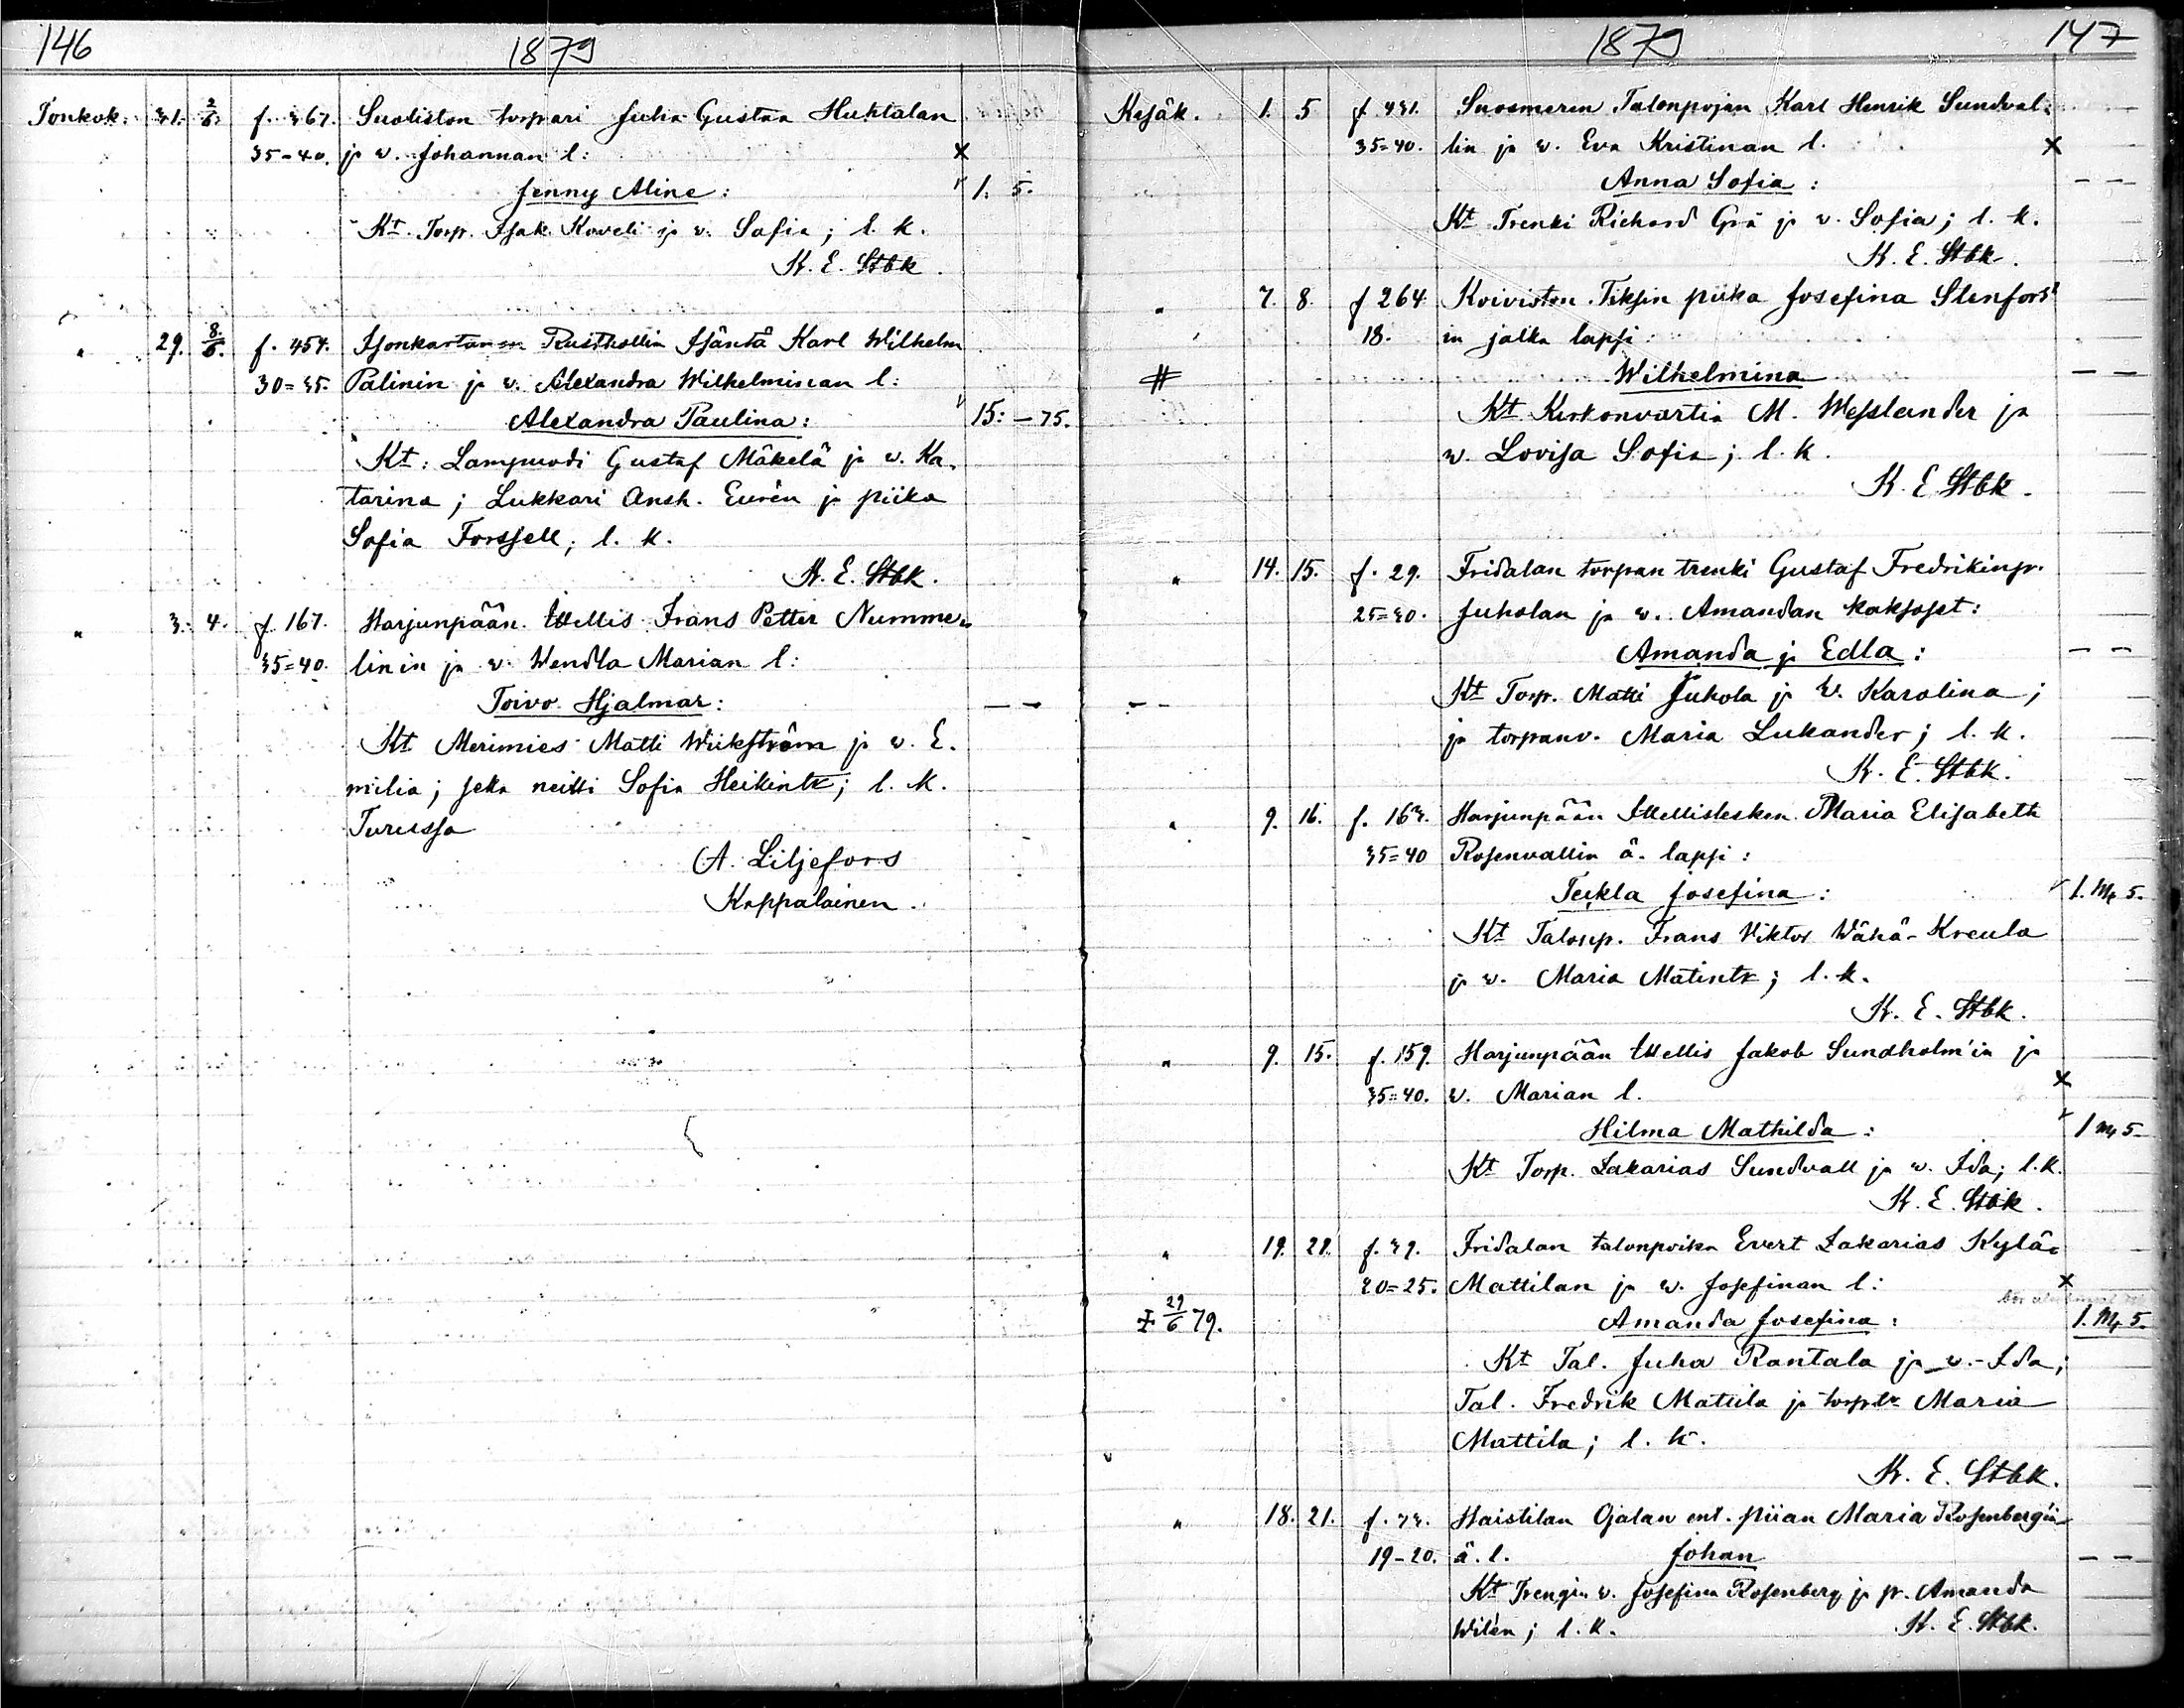 146 1879
Toukok. 31. 2/6. f. 367. Suoliston torpari Juha Gustaa Huhtalan
35-40. ja w. Johannan l: x
Jenny Aline: 1. 5.
Kt. Torp. Isak Koveli ja w. Sofia; l. k.
K. E. Stbk.
" 29. 8/6. f. 454. Isonkartanon Rusthollin Isäntä Karl Wilhelm
30=35. Palinin ja w. Alexandra Wilhelminan l:
Alexandra Paulina: 15: -75.
Kt: Lampuodi Gustaf Mäkelä ja w. Ka-
tarina; Lukkari Ansh. Eurén ja piika
Sofia Forssell; l. k.
K. E. Stbk.
" 3. 4. f. 167. Harjunpään Itellis Frans Petter Numme-
35=40. linin ja w. Wendla Marian l:
Toivo Hjalmar: - -
Kt Merimies Matti Wiikström ja w. E-
milia; seka neitti Sofia Heikintr; l. k.
Turussa
A. Liljefors
Kappalainen.
1879 147
Kesäk. 1. 5 f. 431. Suosmeren Talonpojan Karl Henrik Sundval-
35=40. lin ja w. Eva Kristinan l. x
Anna Sofia: - -
Kt Trenki Richard Grä ja w. Sofia; l. k.
K. E. Stbk.
" 7. 8. f 264 Koiviston Tiksin piika Josefina Stenfors'
18. in jalka lapsi:
# Wilhelmina - -
Kt Kirkonvartia M. Wesslander ja
w. Lovisa Sofia; l. k.
K. E. Stbk.
" 14. 15. f. 29. Fridalan torpan trenki Gustaf Fredrikinp.
25=30. Juholan ja w. Amandan kaksoset:
Amanda ja Edla: - -
- - Kt Torp. Matti Juhola ja w. Karolina;
ja torpanv. Maria Lukander; l. k.
K. E. Stbk.
" 9. 16. f. 163. Harjunpään Itellislesken Maria Elisabeth
35=40 Rosenvallin ä. lapsi:
Teckla Josefina: 1. Mk 5.
Kt Talonp. Frans Viktor Wähä-Kreula
ja w. Maria Matintr; l. k.
K. E. Stbk.
" 9. 15. f. 159. Harjunpään Itellis Jakob Sundholm'in ja
35=40. w. Marian l. x
Hilma Mathilda: 1 Mk 5-
Kt Torp. Zakarias Sundvall ja w. Ida; l. k.
K. E. Stbk.
" 19. 21. f. 39. Fridalan talonpoika Evert Zakarias Kylä-
20=25. Mattilan ja w. Josefinan l: x
‡ 29/6 79. Amanda Josefina: 1. Mk 5.
Kt Tal. Juha Rantala ja w. Ida;
Tal. Fredrik Mattila ja torptr Maria
Mattila; l. k.
K. E. Stbk.
" 18. 21. f. 73. Haistilan Ojalan ent. piian Maria Rosenberg'in
19-20. ä. l. Johan - -
Kt Trengin w. Josefina Rosenberg ja p. Amanda
Wilén; l. k. K. E. Stbk.